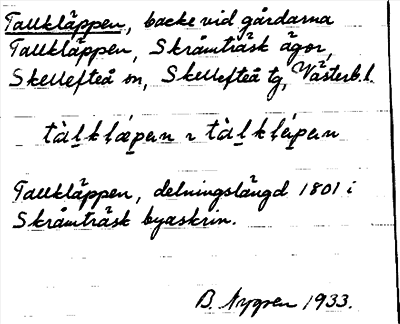 Tallkläppen, backe vid gårdarna
Tallkläppen, Skråmträsk ägor,
Skellefteå sn, Skellefteå tg, Västerb.l.
Tallkläppen, delningslängd 1801 i
Skråmträsk byaskrin.
B. Nygren 1933.